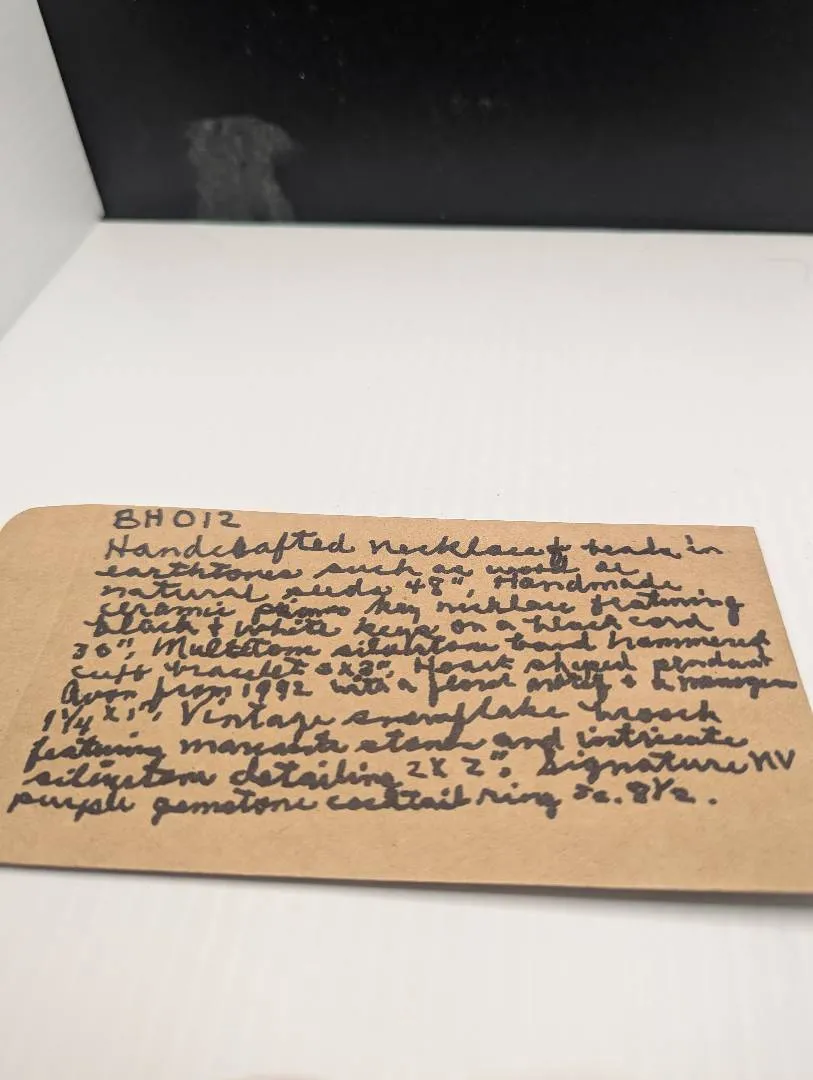 BH012
Handcrafted necklace & beads in
earthtones such as well as
natural seeds 48", Handmade
ceramic piano key necklace featuring
black & white keys on a black cord
30", Multitone silvertone band hammered
cuff bracelet 3", Heart shaped pendant
Avon from 1992 with a floral motif & a
1 1/4 x 1", Vintage snowflake brooch
featuring marcasite stones and intricate
silvertone detailing 2 x 2", Signature NV
purple gemstone cocktail ring sz. 8 1/2.